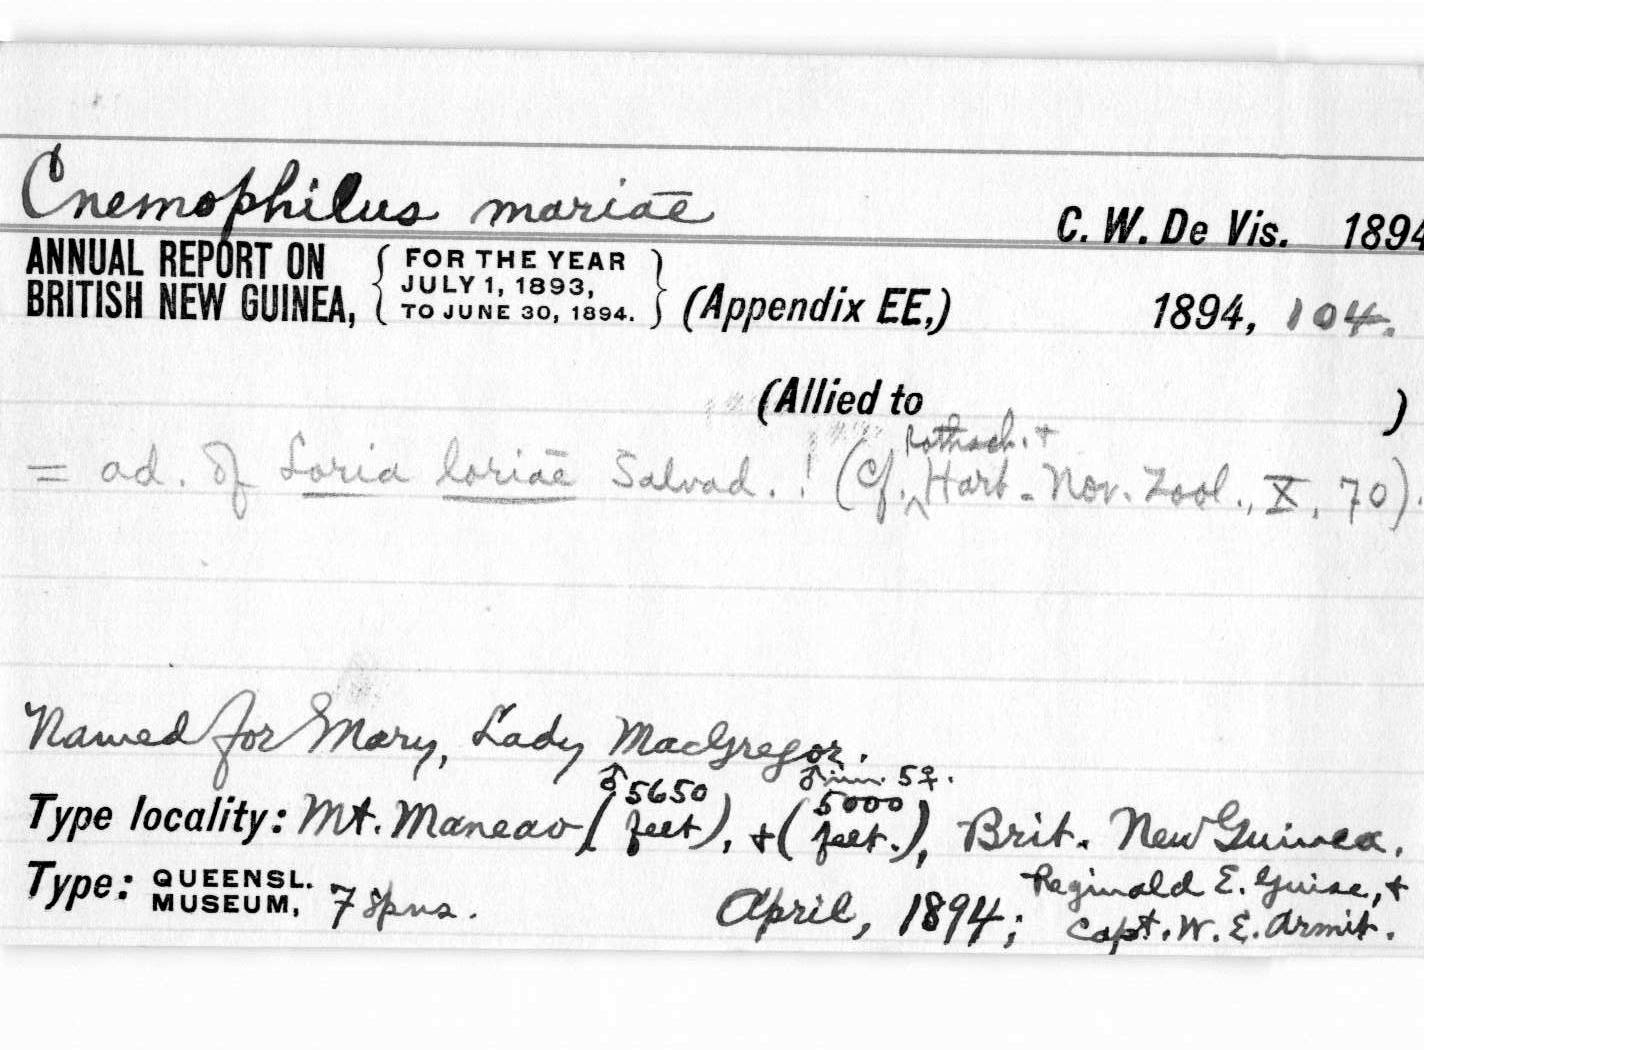 Cnemophilus mariae C. W. De Vis. 1894
ANNUAL REPORT ON BRITISH NEW GUINEA, { FOR THE YEAR JULY 1, 1893, TO JUNE 30, 1894. } (Appendix EE,) 1894, 104.
(Allied to )
= ad. of Loria loriae Salvad.! (cf. Rothsch. + Hart. Nov. Zool., X, 70).
Named for Mary, Lady MacGregor.
♂ ♂ imm. 5♀.
Type locality: Mt. Maneao (5650 feet), + (5000 feet.), Brit. New Guinea.
Type: QUEENSL. MUSEUM, 7 spns. April, 1894; Reginald E. Guise, + Capt. W. E. Armit.